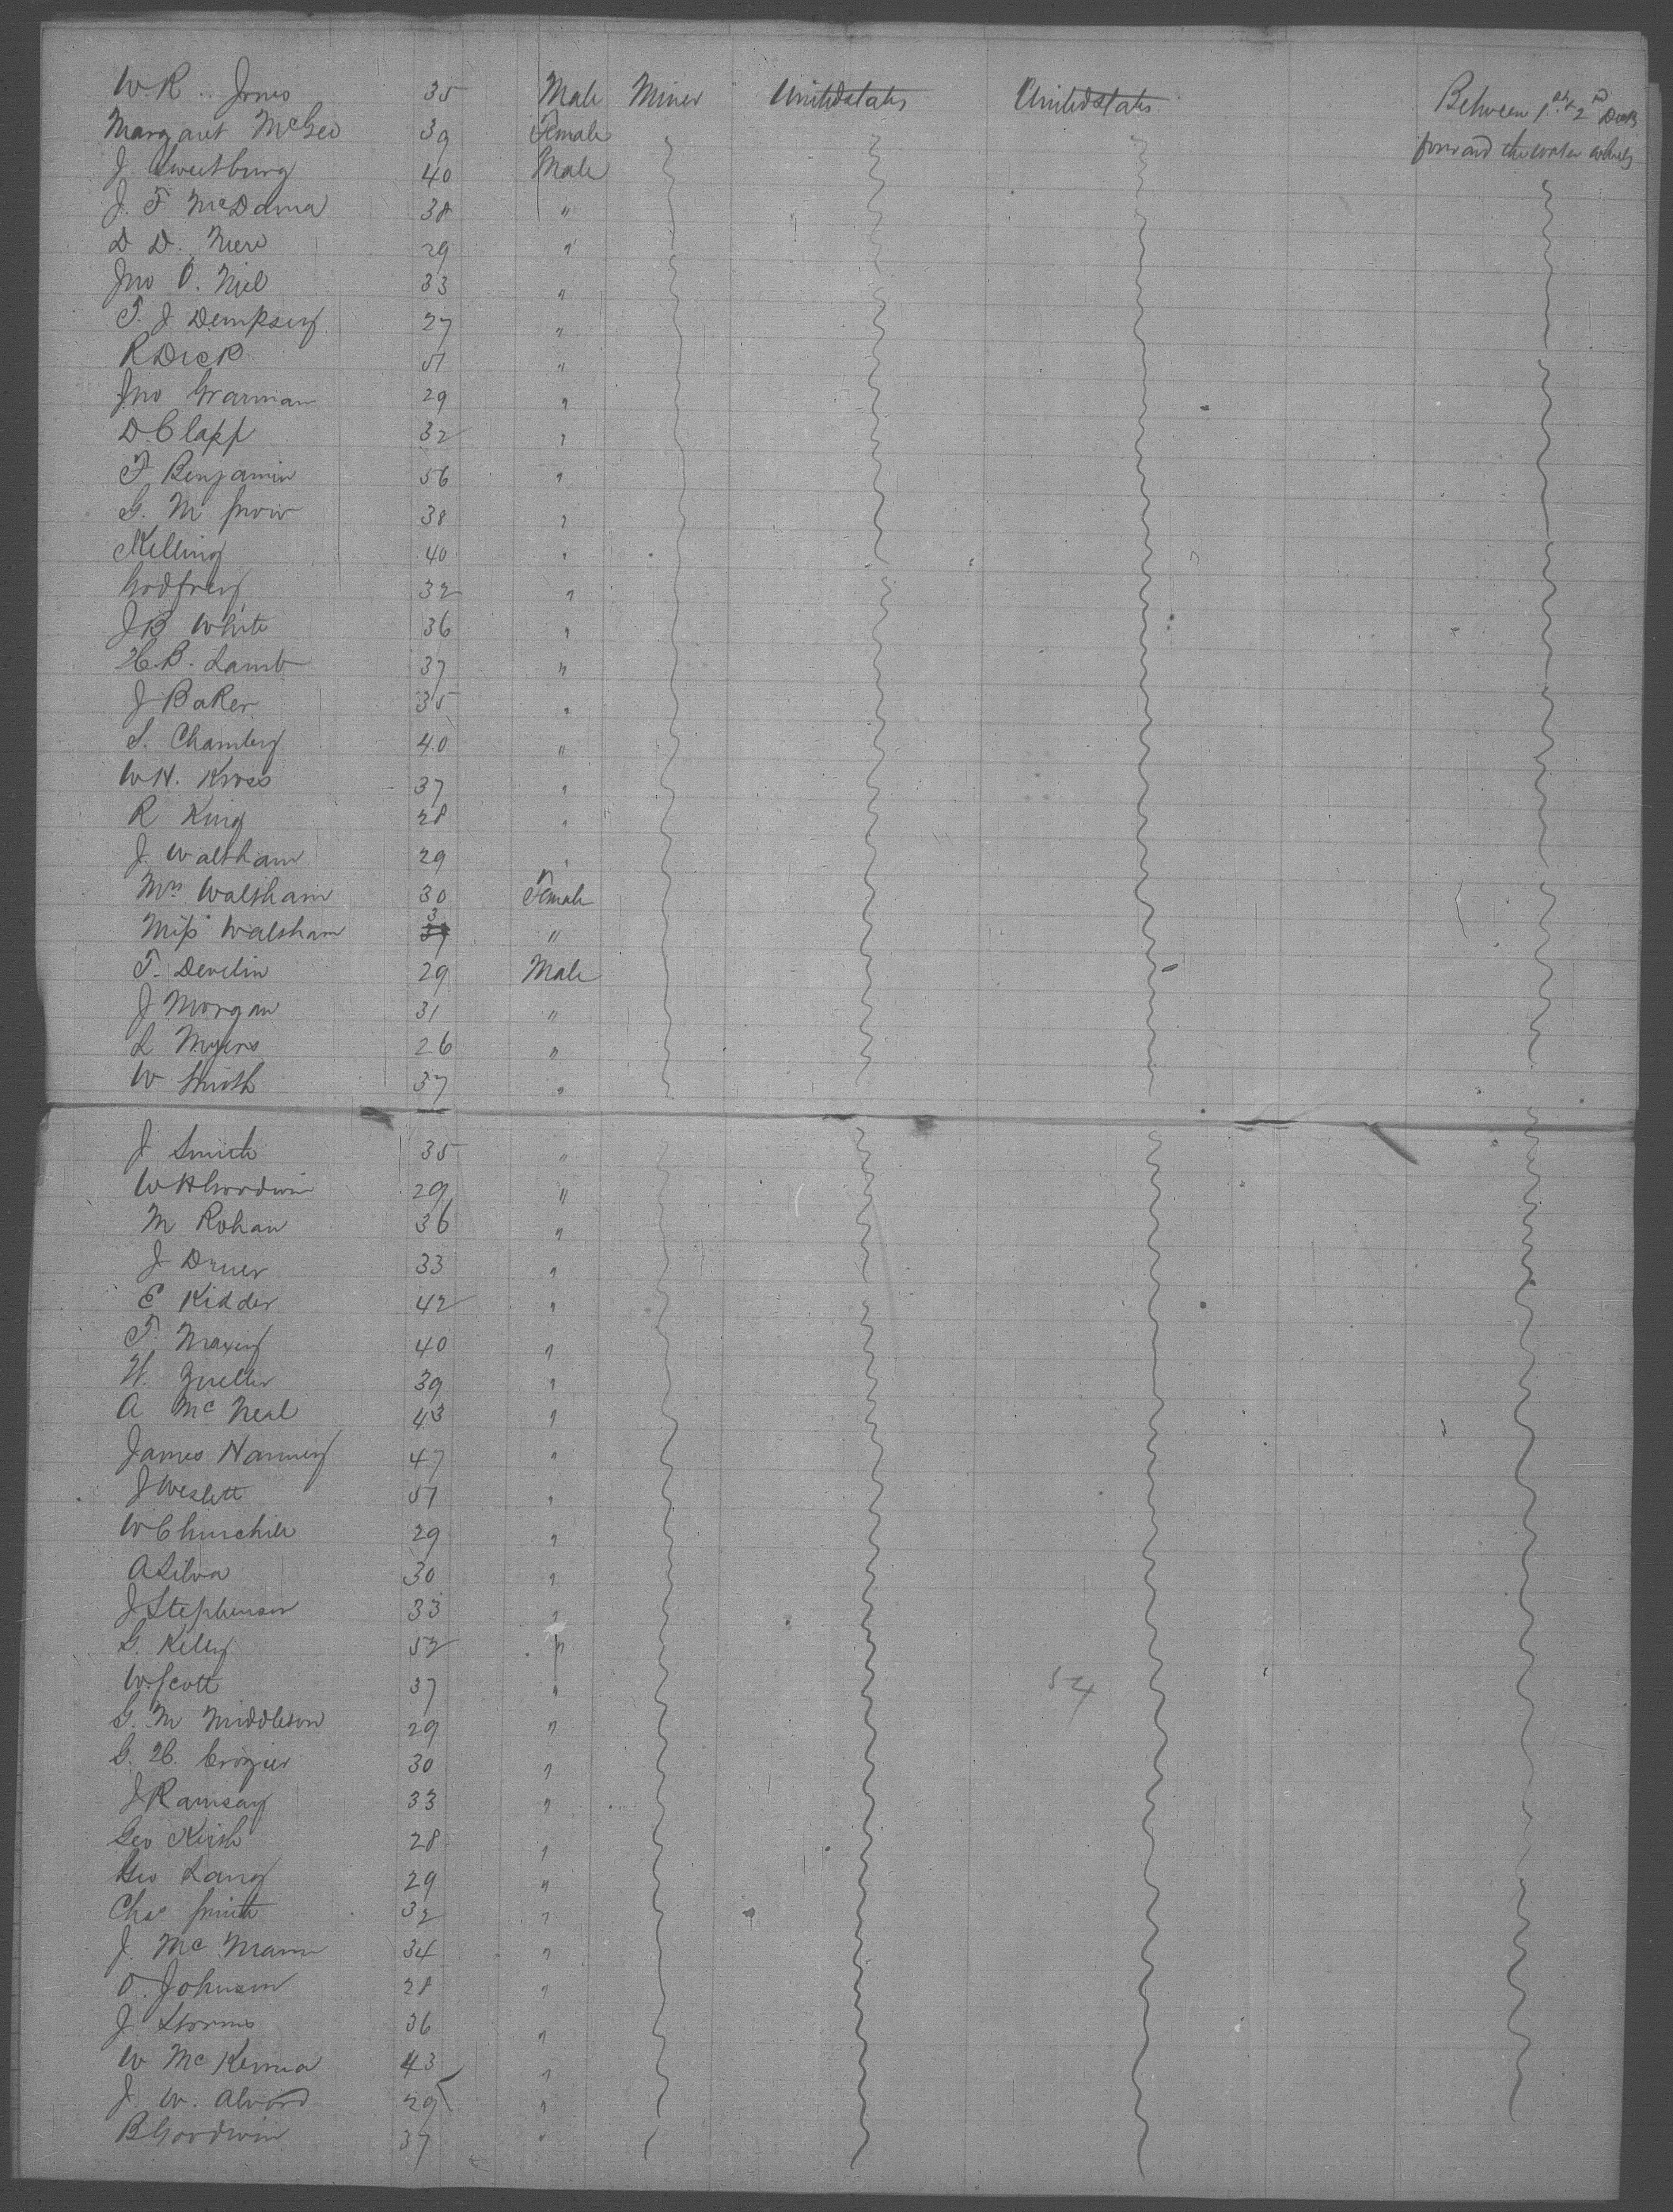 W. R. Jones 35 Male Miner United states United states Between 1st & 2nd Deck
Margaret McGeo 39 Female forward the water wheels
J. Sweetburg 40 Male
J. F McDama 38 "
D D. 29 "
Jno O. Niel 33 "
T. J Dempsey 27 "
R Dick 51 "
Jno Grarman 29 "
D. Clapp 32 "
F. Benjamin 56 "
G. M 38 "
Kelling 40 "
Godfrey 32 "
J B White 36 "
H. B. Lamb 37 "
J Baker 35 "
S. Chambers 40 "
W H. Kross 37 "
R King 28 "
J. Waltham 29 "
Mrs Waltham 30 Female
Miss Waltham 3 "
T. Develin 29 Male
J Morgan 31 "
L Myers 26 "
W Smith 37 "
J Smith 35 "
W H Goodwin 29 "
M Rohan 36 "
J Druer 33 "
E Kidder 42 "
T. Maxey 40 "
W. 39 "
A McNeal 43 "
James Nanney 47 "
J Weslett 51 "
W Churchill 29 "
A Silva 30 "
J Stephenson 33 "
G. Kelly 52 "
W. Scott 37 " 54
G. M Middleton 29 "
G. H. Crozier 30 "
J Ramsay 33 "
Geo Kirsh 28 "
Geo Lang 29 "
Chas. Smith 32 "
J. McMann 34 "
O. Johnson 28 "
J. Storms 36 "
W McKenna 43 "
J. W. Alvord 29 "
B Goodwin 37 "